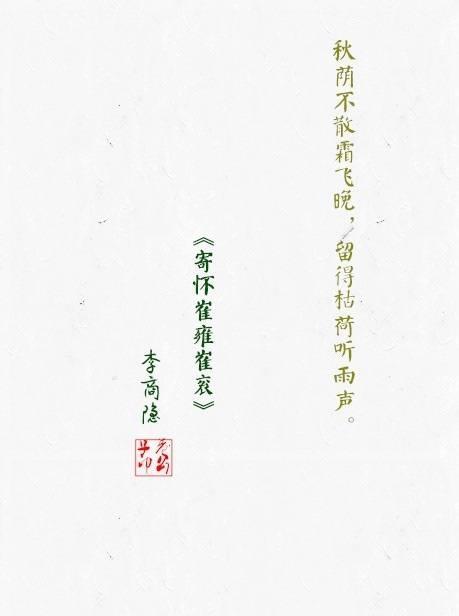 秋荫不散霜飞晚，留得枯荷听雨声。
《寄怀崔雍崔衮》
李商隐